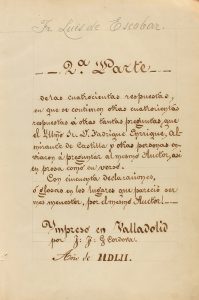 Fr. Luis de Escobar.
2.ª Parte
delas cuatrocientas respuestas,
en que se contienen otras cuatrocientas
respuestas á otras tantas preguntas, que
el Yllmo Sr. D. Fadrique Enrriquez, Al-
mirante de Castilla y otras personas en-
viaron á preguntar al mesmo Auctor, asi
en prosa como en verso.
Con cincuenta declaraciones,
ó glosas en los lugares que pareció ser
mas menester, por el mesmo Auctor.
Ympreso en Valladolid
por J: J: Cordova
Año de MDLII.